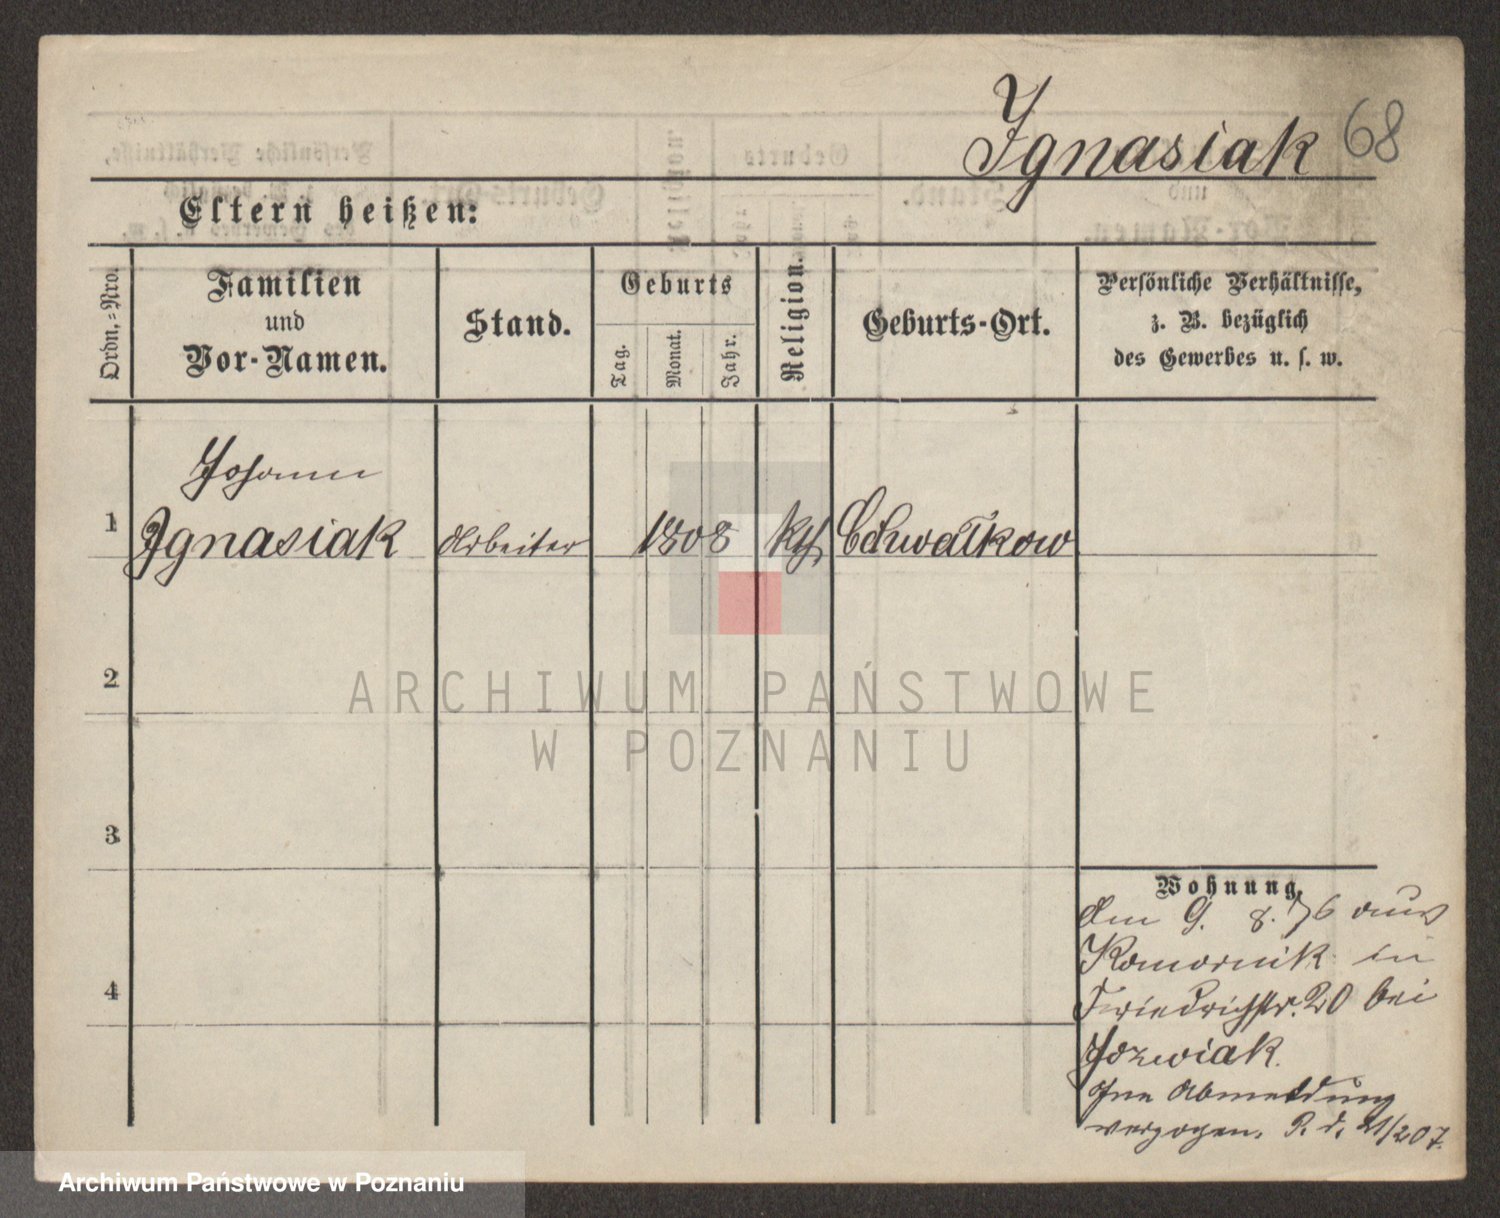 Ignasiak 68
Eltern heißen:
Ordn.=Nro.
Familien
und
Vor-Namen.
Stand.
Geburts
Tag.
Monat.
Jahr.
Religion.
Geburts-Ort.
Persönliche Verhältnisse,
z. B. bezüglich
des Gewerbes u. s. w.
Johann
1 Ignasiak Arbeiter 1808 kth. Chwałkow
2
3
4
Wohnung.
Am 9. 8. 76 aus
Komornik in
Friedrichstr. 20 bei
Jozwiak.
Ohne Abmeldung
verzogen. P. d. 21/2 07.
ARCHIWUM PAŃSTWOWE
W POZNANIU
Archiwum Państwowe w Poznaniu